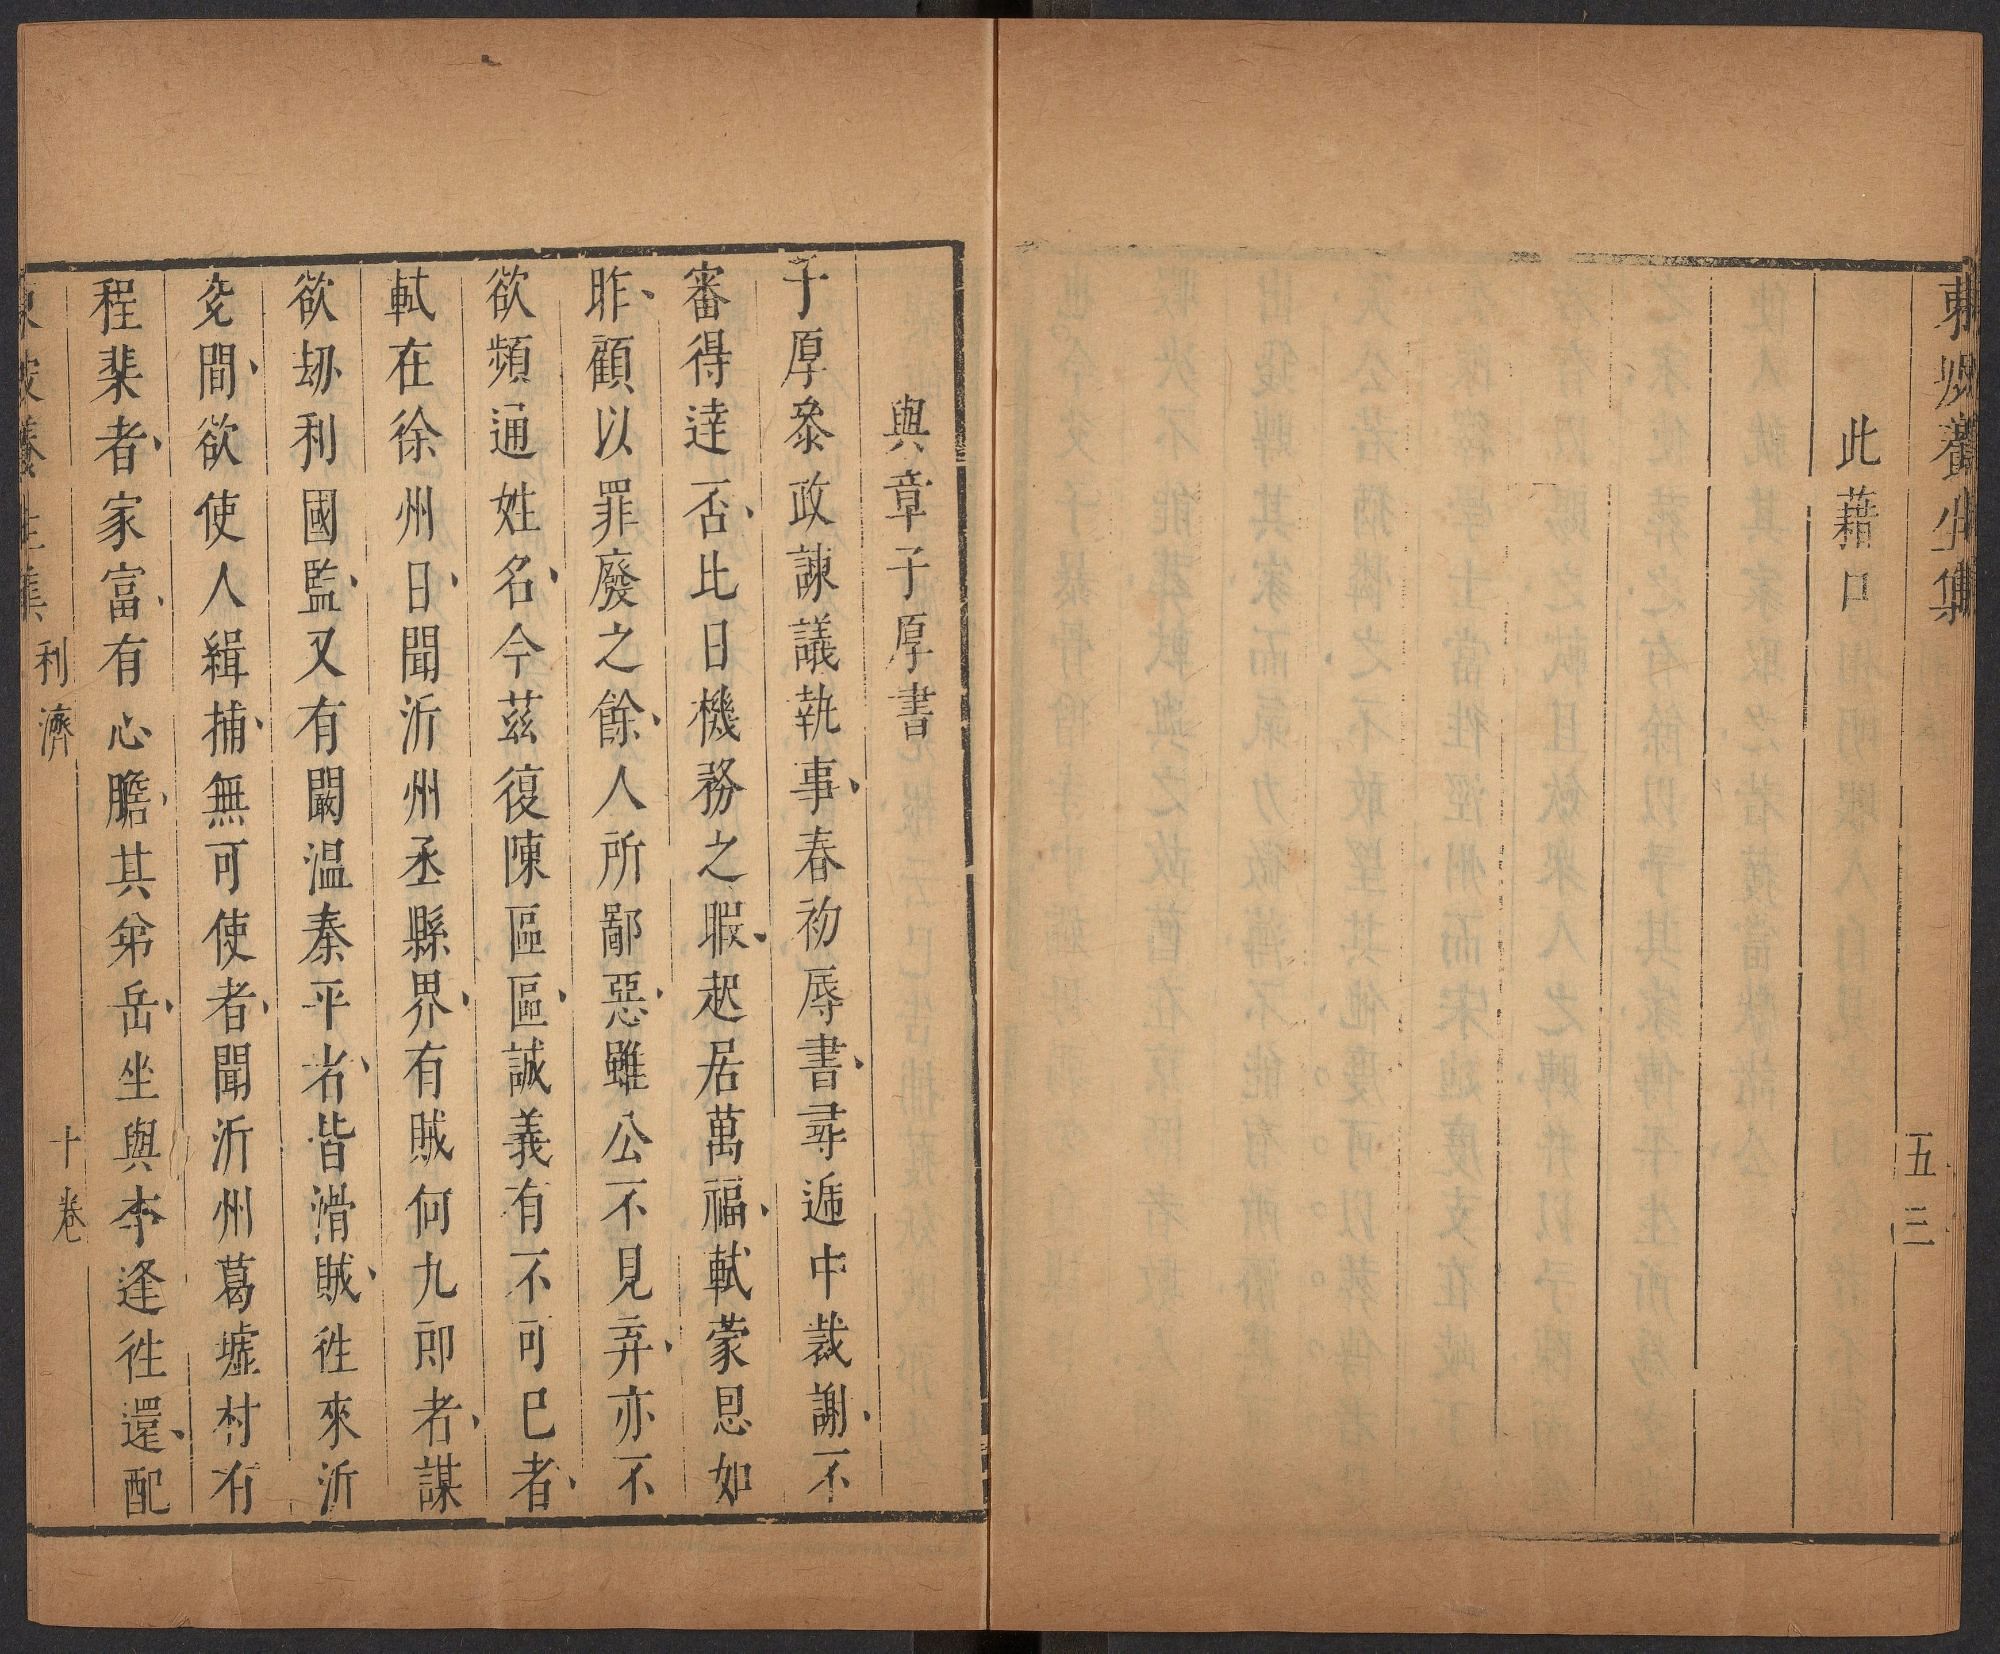 東坡養生集
五三
此藉口
與章子厚書
子厚叅政諫議執事春初辱書尋逓中裁謝不
審得逹否比日機務之暇起居萬福軾蒙恩如
昨顧以罪廢之餘人所鄙惡雖公不見弃亦不
欲頻通姓名今茲復陳區區誠義有不可巳者
軾在徐州日聞沂州丞縣界有賊何九郎者謀
欲刼利國監又有闞温秦平者皆滑賊徃來沂
兖間欲使人緝捕無可使者聞沂州葛墟村有
程棐者家富有心膽其弟岳坐與李逢徃還配
東坡養生集
利濟
十卷